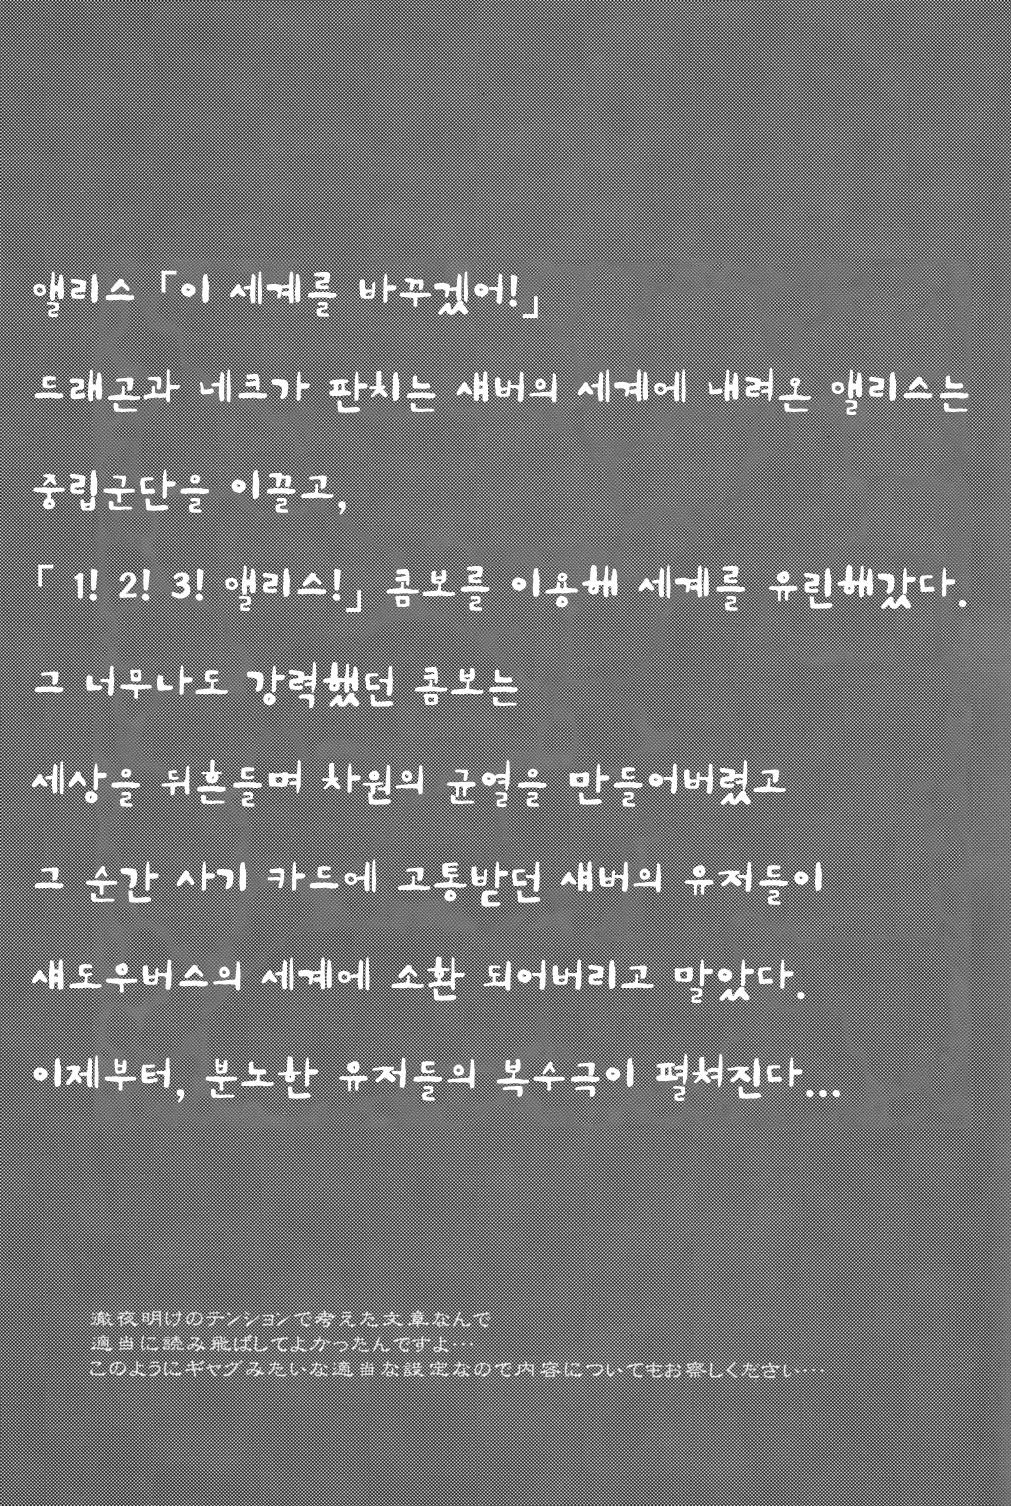 앨리스 「이 세계를 바꾸겠어!」
드래곤과 네크가 판치는 섀버의 세계에 내려온 앨리스는
중립군단을 이끌고,
「 1! 2! 3! 앨리스!」 콤보를 이용해 세계를 유린해갔다.
그 너무나도 강력했던 콤보는
세상을 뒤흔들며 차원의 균열을 만들어버렸고
그 순간 사기 카드에 고통받던 섀버의 유저들이
섀도우버스의 세계에 소환 되어버리고 말았다.
이제부터, 분노한 유저들의 복수극이 펼쳐진다...
徹夜明けのテンションで考えた文章なんで
適当に読み飛ばしてよかったんですよ…
このようにギャグみたいな適当な設定なので内容についてもお察しください…